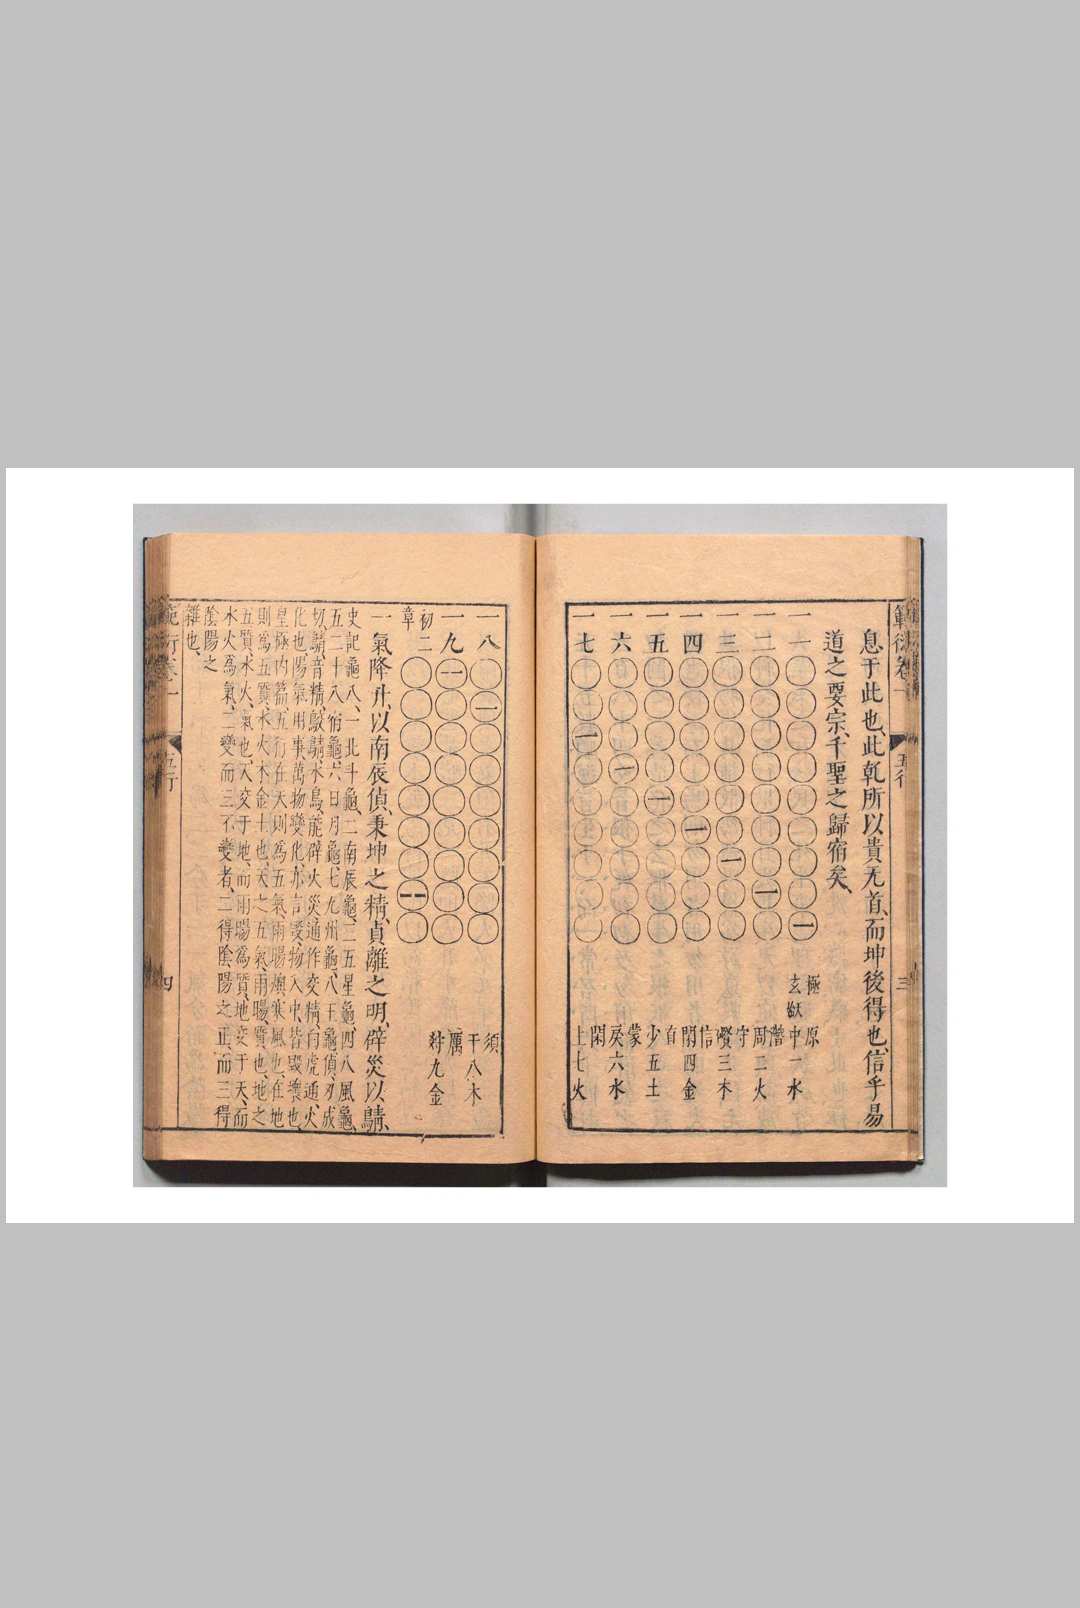 範衍卷一 五行 三
息于此也、此乾所以貴无首、而坤後得也、信乎易
道之要宗、千聖之歸宿矣、
一一 極 原
玄妖 中一水
一二 潛
周二火
一三 守
三木
一四 信
閑四金
一五 自
少五土
一六 蒙
戾六水
一七 閑
上七火
一八 須
干八木
一九 厲
九金
初二
章
一氣降升、以南辰偵、秉坤之精、貞離之明、辟災以鶄、
史記龜八、一北斗龜、二南辰龜、三五星龜、四八風龜、
五二十八宿龜、六日月龜、七九州龜、八王龜、偵、丑成
切、鶄、音精、鵁鶄、水鳥、能辟火災、通作交精、向虎通、火
化也、陽氣用事、萬物變化、亦言燬、物入中、皆毀壞也、
皇極內篇、五行在天、則為五氣、雨暘燠寒風也、在地
則為五質、水火木金土也、天之五氣、雨暘、質也、地之
五質、水火、氣也、天交于地、而雨暘為質、地交于天、而
水火為氣、二變而三不變者、二得陰陽之正、而三得
陰陽之
雜也、
範衍卷一 五行 四